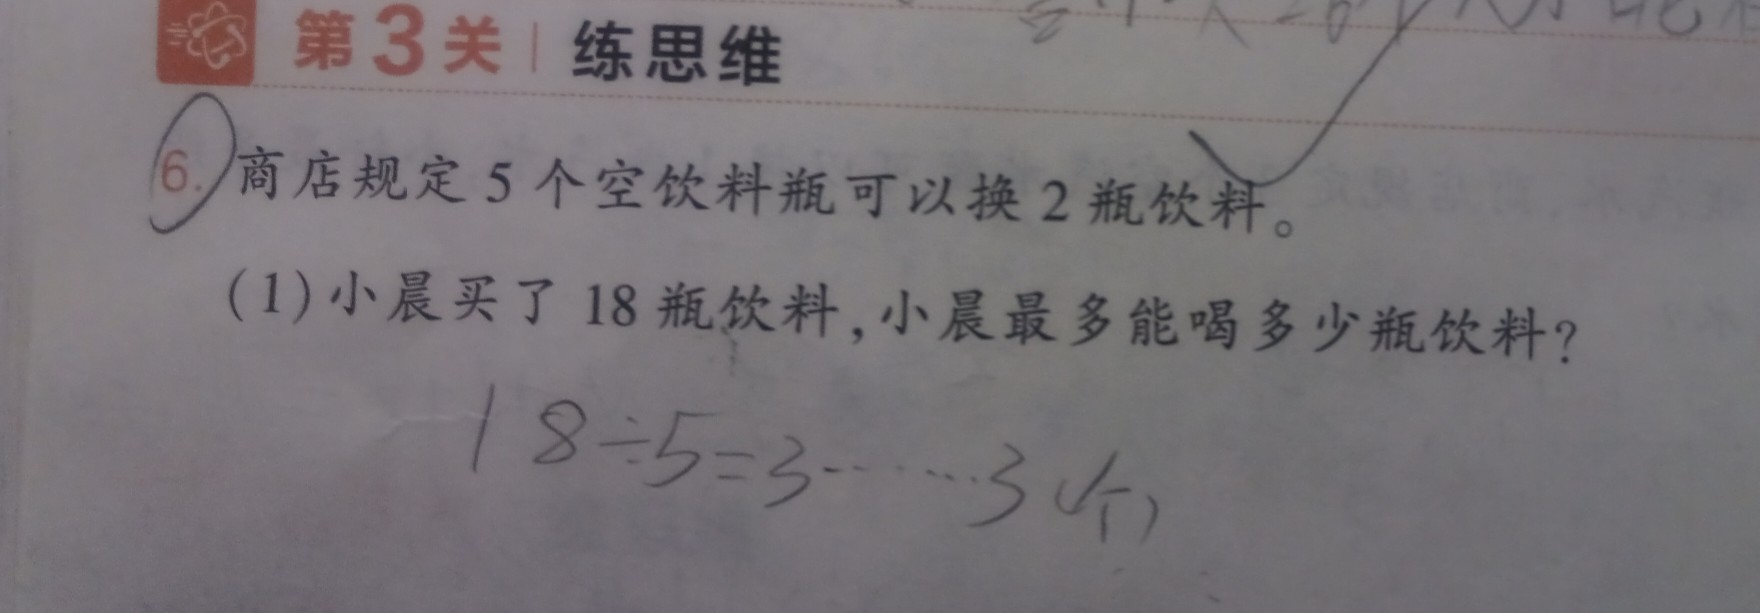 第3关 练思维
6. 商店规定5个空饮料瓶可以换2瓶饮料。
(1)小晨买了18瓶饮料,小晨最多能喝多少瓶饮料?
18÷5=3……3(个)